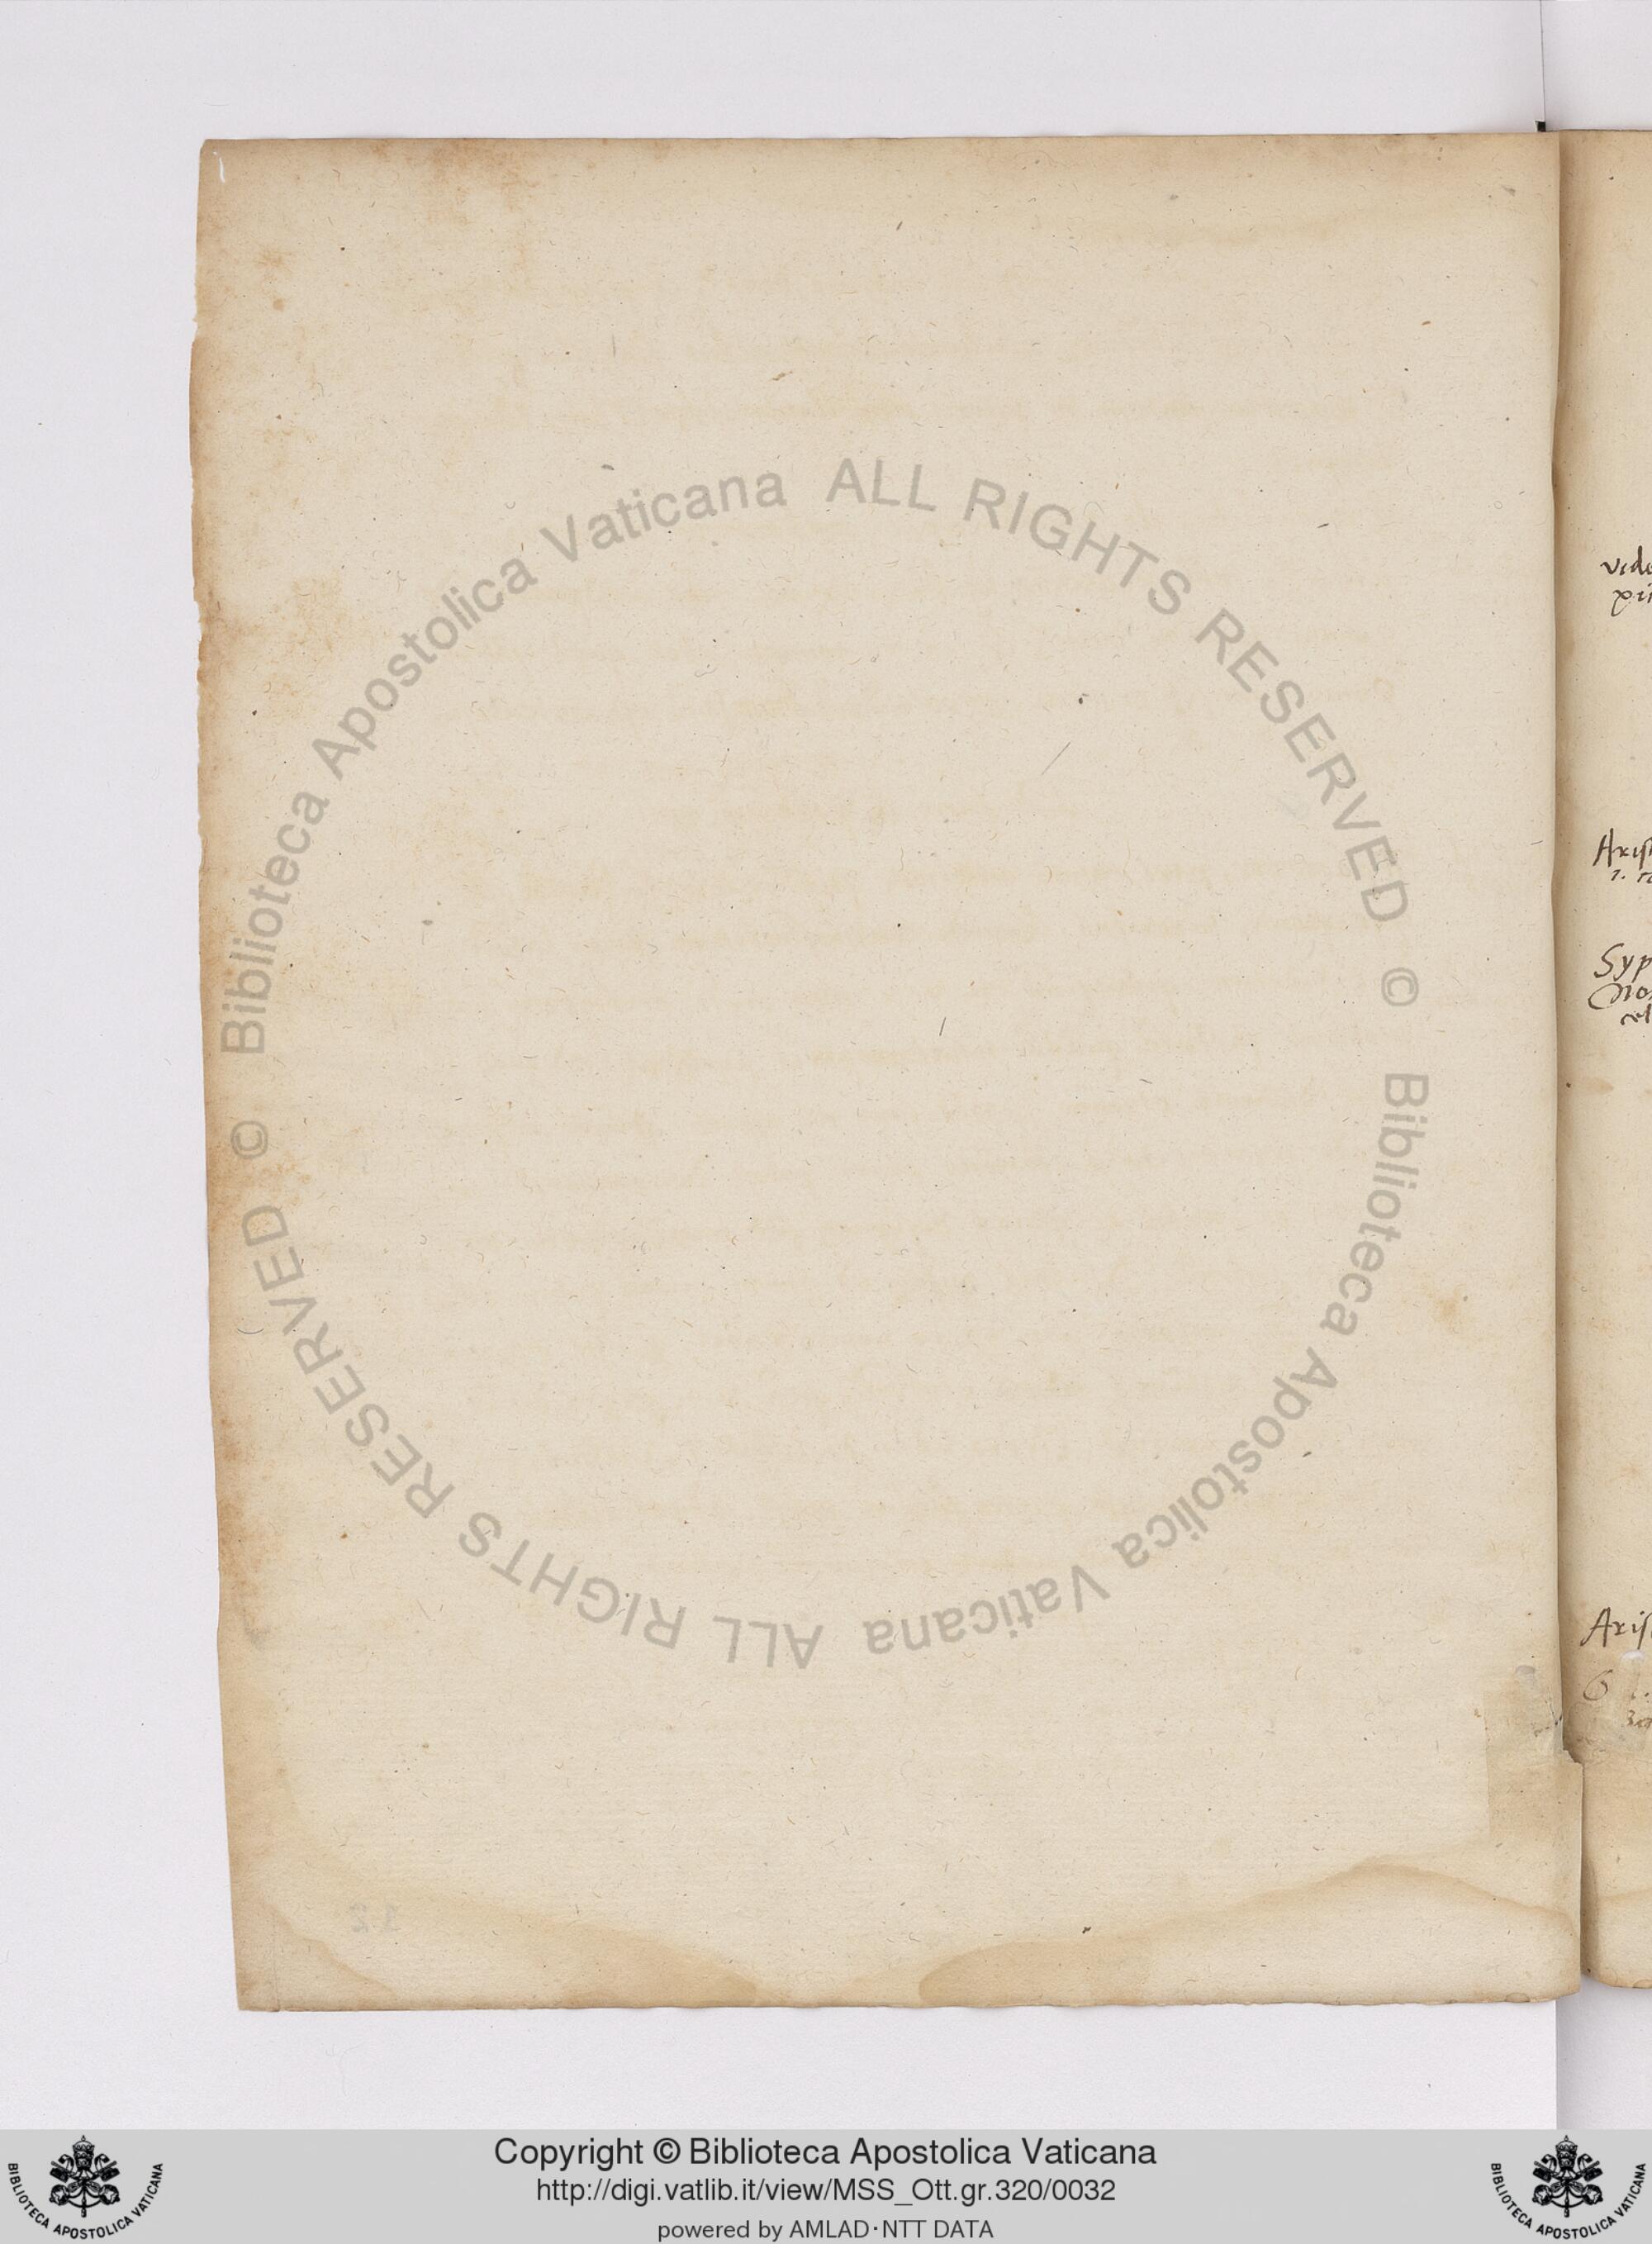 Biblioteca Apostolica Vaticana ALL RIGHTS RESERVED ©
Biblioteca Apostolica Vaticana ALL RIGHTS RESERVED ©
vide
Aris
1.
Syp
Aris
12
Copyright © Biblioteca Apostolica Vaticana
http://digi.vatlib.it/view/MSS_Ott.gr.320/0032
powered by AMLAD·NTT DATA
BIBLIOTECA APOSTOLICA VATICANA
BIBLIOTECA APOSTOLICA VATICANA